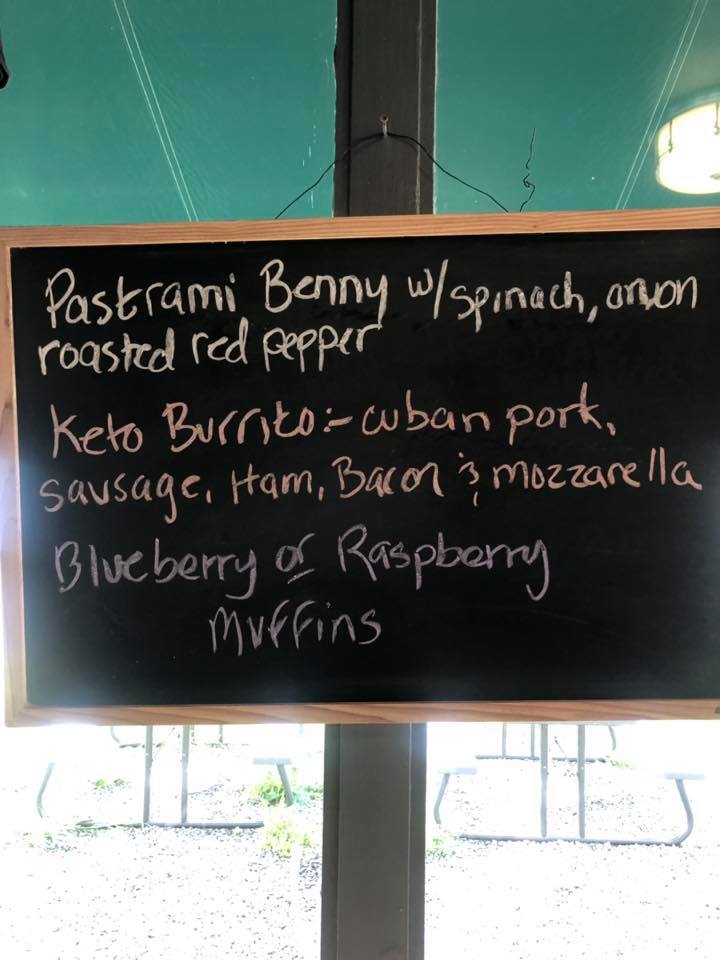 Pastrami Benny w/ spinach, onion
roasted red pepper
Keto Burrito:- cuban pork,
sausage, Ham, Bacon & mozzarella
Blueberry or Raspberry
Muffins